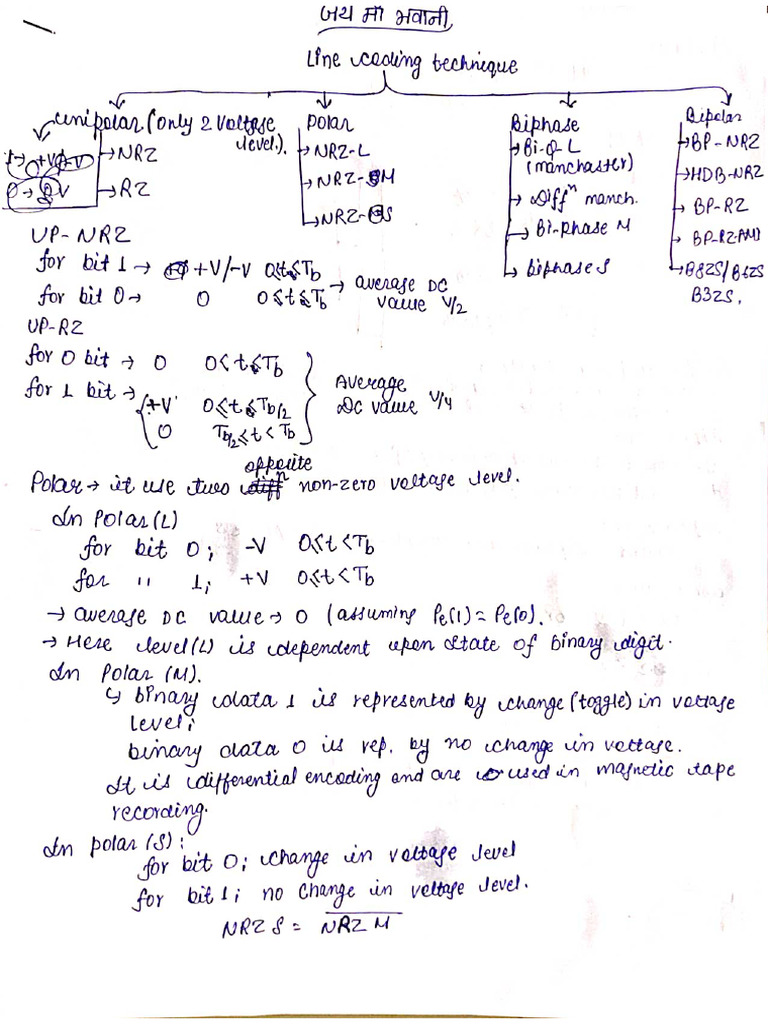 जय माँ भवानी
Line coding technique
unipolar (only 2 voltage level).
→ NRZ
→ RZ
1 → +V/-V
0 → 0 V
Polar
→ NRZ-L
→ NRZ-M
→ NRZ-S
Biphase
→ Bi-φ-L (manchaster)
→ Diffⁿ manch.
→ Bi-phase M
→ biphase S
Bipolar
→ BP-NRZ
→ HDB-NRZ
→ BP-RZ
→ BP-RZ-AMI
→ B8ZS/B6ZS
B3ZS.
UP-NRZ
for bit 1 → +V/-V 0≤t≤Tb
for bit 0 → 0 0≤t≤Tb → average DC value V/2
UP-RZ
for 0 bit → 0 0≤t≤Tb
for 1 bit → { +V 0≤t≤Tb/2
0 Tb/2≤t<Tb } Average DC value V/4
Polar → it use two opposite non-zero voltage level.
In Polar(L)
for bit 0; -V 0≤t<Tb
for " 1; +V 0≤t<Tb
→ average DC value → 0 (assuming Pe(1) = Pe(0).
→ Here level(L) is dependent upon state of binary digit.
In Polar (M).
↳ binary data 1 is represented by change (toggle) in voltage
level;
binary data 0 is rep. by no change in voltage.
It is differential encoding and are used in magnetic tape
recording.
In polar (S):
for bit 0; change in voltage level
for bit 1; no change in voltage level.
NRZ S = N̅R̅Z̅ ̅M̅